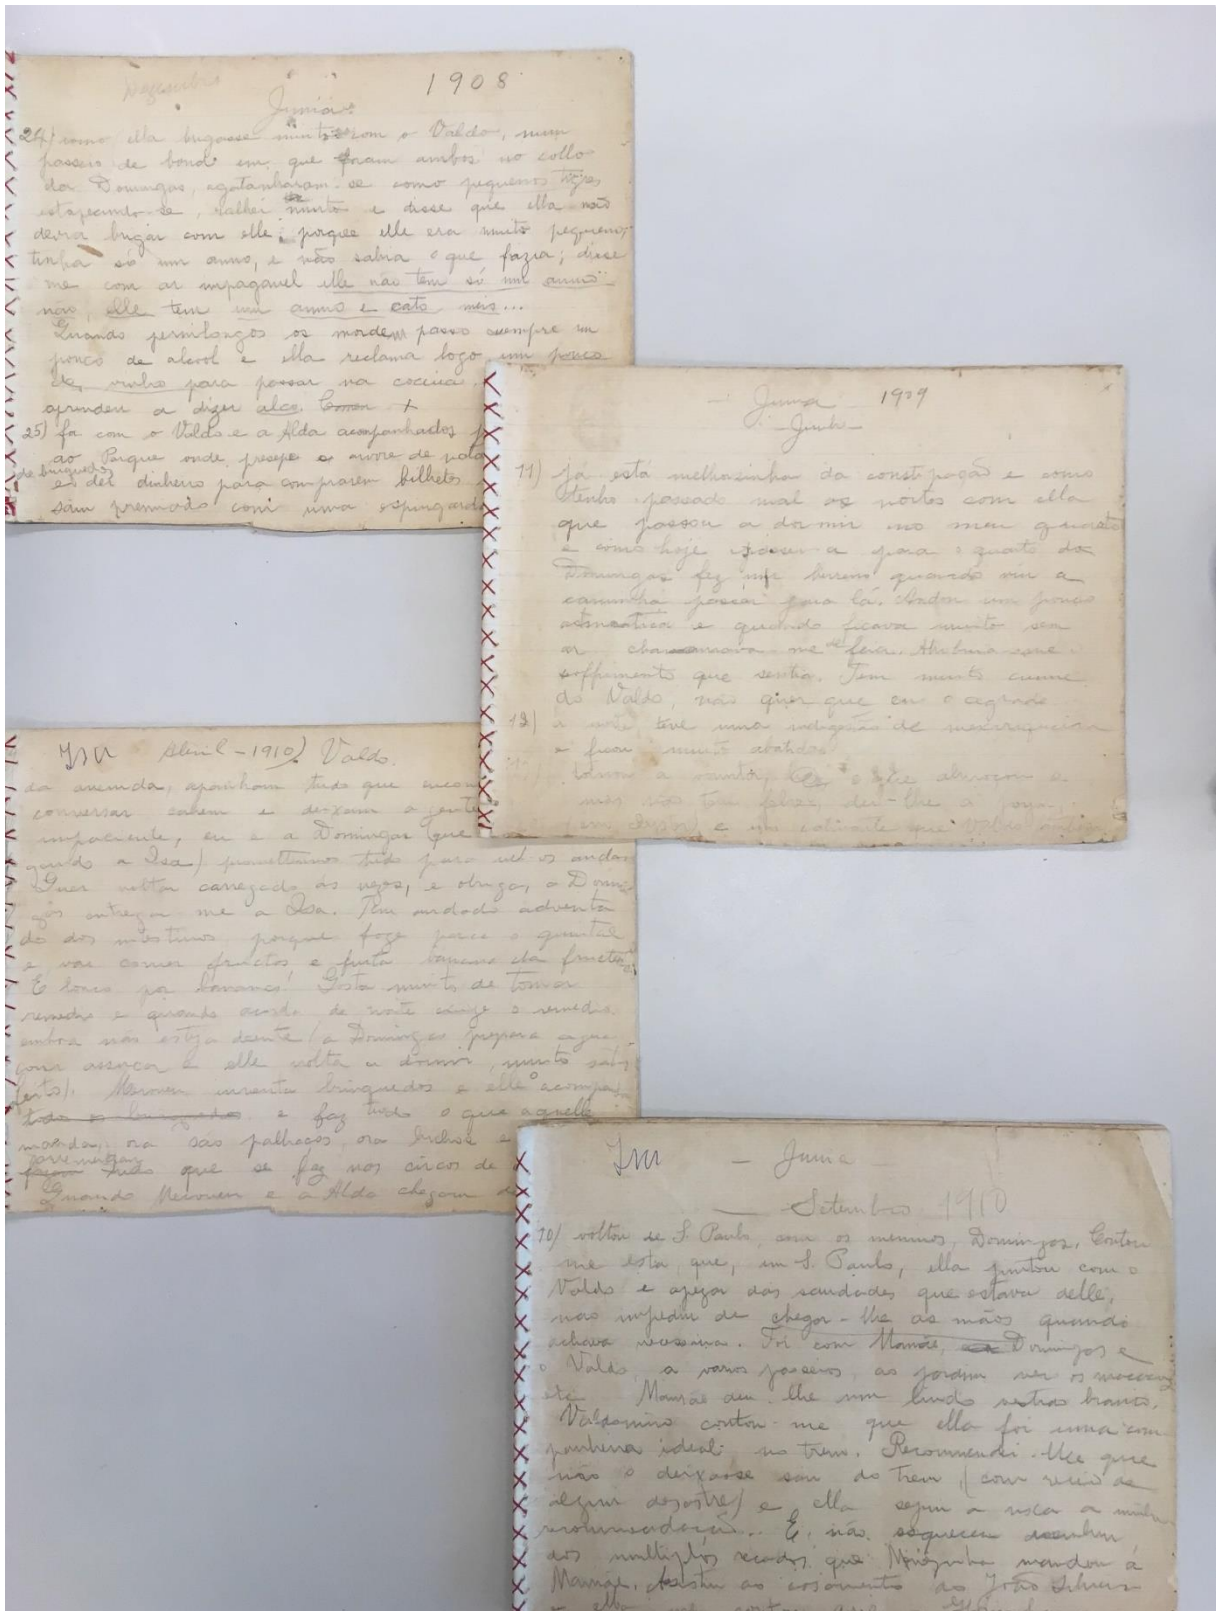 Dezembro
1908
Junia
24) como ella brigasse muito com o Valdo, num
passeio de bond em que foram ambos no collo
da Domingas, agatanharam-se como pequenos tigres
estapeando-se, ralhei muito e disse que ella não
devia brigar com elle, porque elle era muito pequeno,
tinha só um anno, e não sabia o que fazia; disse
me com ar impagavel elle não tem só um anno
não, elle tem um anno e cato meis...
Quando pernilongos os mordem passo sempre um
pouco de alcool e ella reclama logo um pouco
de vinho para passar na coceira
aprendeu a dizer alco. +
25) fa com o Valdo e a Alda acompanhados
ao Parque onde presepe e arvore de nata
de brinquedos
e dei dinheiro para comprarem bilhetes
sain premiado com uma espingarda
- Junia - 1909
- Junho -
11) já está melhorsinha da constipação e como
tenho passado mal as noites com ella
que passou a dormir no meu quarto
e como hoje passei-a para o quarto da
Domingas fez um berreiro quando viu a
caminha passar para lá. Andou um pouco
asmatica e quando ficava muito sem
ar me
soffrimento que sentia. Tem muito ciume
do Valdo, não quer que eu o agrade
12) a noite teve uma indigestão de
e ficou muito abatida
tornou a almoçou e
mas não tem febre, dei-lhe a
e que Valdo
Abril - 1910) Valdo.
da avenida, apanham tudo que
conversar cahem e deixam a gente
impaciente, eu e a Domingas (que
a Isa) promettemos tudo para vel-os andar
Quer voltar carregado ás vezes, e obriga, a Domin
gas entregar me a Isa. Tem andado adoenta
do dos intestinos porque foge para o quintal
e vae comer fructos e furta banana da fructeira
É louco por bananas! Gosta muito de tomar
remedio e quando acorda de noite exige o remedio
embora não esteja doente (a Domingas prepara agua
com assucar e elle volta a dormir, muito satis
feito). Meroveu inventa brinquedos e elle o acompanha
e faz tudo o que aquelle
manda, ora são palhaços, ora bichos e
tudo que se faz nos circos de
Quando Meroveu e a Alda chegam
- Junia -
- Setembro 1910
10) voltou de S. Paulo, com os meninos, Domingas. Contou
me esta que, em S. Paulo, ella juntou com o
Valdo e apezar das saudades que estava delle,
não impediu de chegar-lhe as mãos quando
achava necessario. Foi com Mamãe, Domingas e
o Valdo, a varios passeios, ao jardim ver os macacos
etc. Mamãe deu-lhe um lindo vestido branco.
Valdomiro contou-me que ella foi uma com
panheira ideal no trem. Recommendei-lhe que
não o deixasse sair do trem (com receio de
algum desastre) e ella seguiu a risca a minha
recommendação... E, não esqueceu nenhum
dos multiplos recados que mandou á
Mamãe. Assistiu ao casamento do João